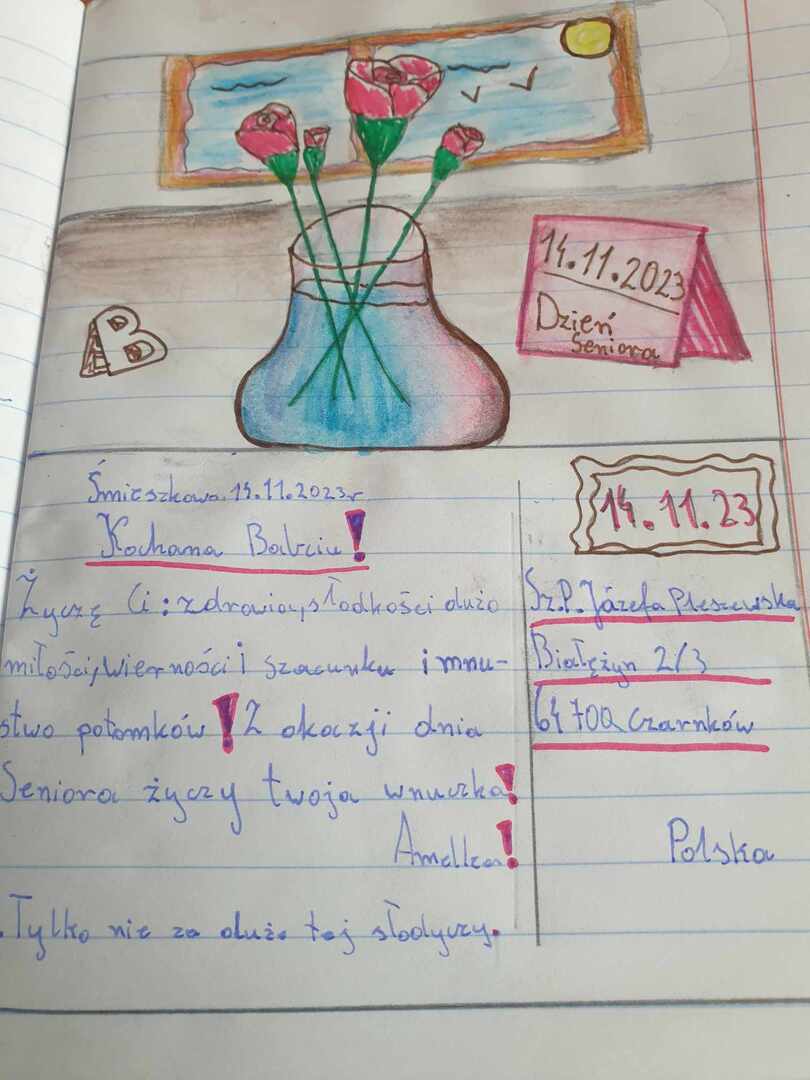 14.11.2023
Dzień
Seniora
Śmieszkowo, 14.11.2023r.
Kochana Babciu!
Życzę Ci: zdrowia, słodkości dużo
miłości, wierności i szacunku i mnu-
stwo potomków! Z okazji dnia
Seniora życzy twoja wnuczka!
Amelka!
.Tylko nie za dużo tej słodyczy.
14.11.23
Sz.P. Józefa Pleszewska
Białężyn 2/3
64 700 Czarnków
Polska